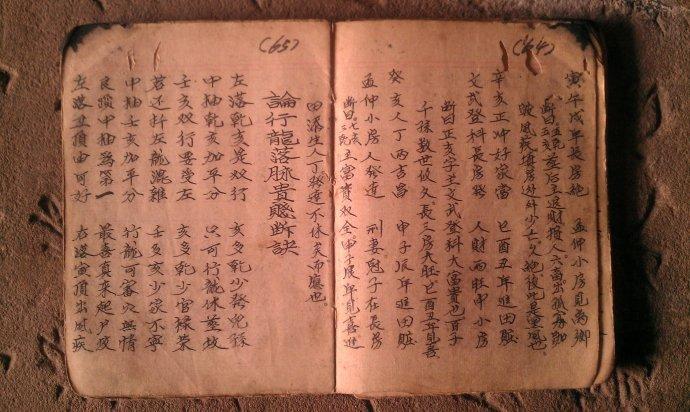 (64)
寅午戌年長房絕 孟仲小房見為鄉
斷曰五克亥差后主退財損人六畜出孤寡即
敗風疾填房過
辛亥正冲好家當 巳酉丑年進田庄
文武登科長房發 人財兩旺中小房
斷曰正亥字主文武登科大富貴也百子
千孫數世攸久長三房大旺巳酉丑年見喜
癸亥人丁兩吉昌 申子辰年進田庄
孟仲小房人發達 刑妻剋子在長房
斷曰七亥三癸主富貴双全申子辰年見喜進
田添生人丁發達不休矣而應也
(65)
論行龍落脉貴賤断訣
左落乾亥是双行 亥多乾少發兒孫
中抽乾亥加平分 只可行龍休葬墳
壬亥双行要受左 亥多乾少官祿榮
若还扦左龍混雜 壬多亥少家不寧
中抽壬亥加平分 行龍可審穴無情
艮頭中抽為第一 最喜真來起尸疫
左落丑頂由可好 右落寅頂出風疾